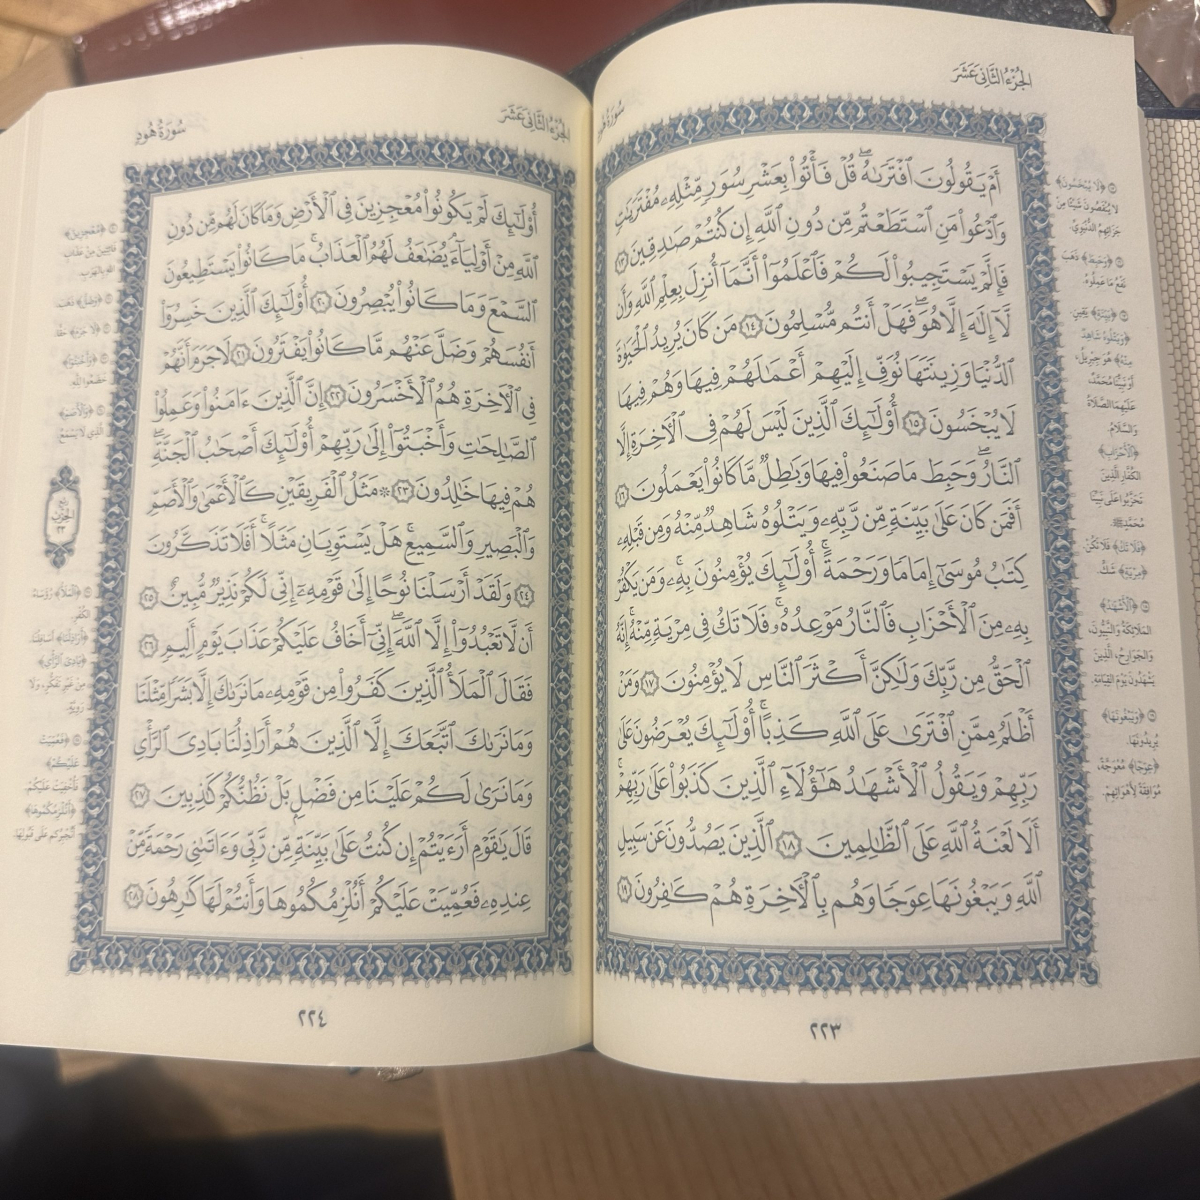 الجزء الثاني عشر
سورة هود
أَمْ يَقُولُونَ ٱفْتَرَىٰهُ ۖ قُلْ فَأْتُوا۟ بِعَشْرِ سُوَرٍ مِّثْلِهِۦ مُفْتَرَيَٰتٍ
وَٱدْعُوا۟ مَنِ ٱسْتَطَعْتُم مِّن دُونِ ٱللَّهِ إِن كُنتُمْ صَٰدِقِينَ ١٣
فَإِلَّمْ يَسْتَجِيبُوا۟ لَكُمْ فَٱعْلَمُوٓا۟ أَنَّمَآ أُنزِلَ بِعِلْمِ ٱللَّهِ وَأَن
لَّآ إِلَٰهَ إِلَّا هُوَ ۖ فَهَلْ أَنتُم مُّسْلِمُونَ ١٤ مَن كَانَ يُرِيدُ ٱلْحَيَوٰةَ
ٱلدُّنْيَا وَزِينَتَهَا نُوَفِّ إِلَيْهِمْ أَعْمَٰلَهُمْ فِيهَا وَهُمْ فِيهَا
لَا يُبْخَسُونَ ١٥ أُو۟لَٰٓئِكَ ٱلَّذِينَ لَيْسَ لَهُمْ فِى ٱلْـَٔاخِرَةِ إِلَّا
ٱلنَّارُ ۖ وَحَبِطَ مَا صَنَعُوا۟ فِيهَا وَبَٰطِلٌ مَّا كَانُوا۟ يَعْمَلُونَ ١٦
أَفَمَن كَانَ عَلَىٰ بَيِّنَةٍ مِّن رَّبِّهِۦ وَيَتْلُوهُ شَاهِدٌ مِّنْهُ وَمِن قَبْلِهِۦ
كِتَٰبُ مُوسَىٰٓ إِمَامًا وَرَحْمَةً ۚ أُو۟لَٰٓئِكَ يُؤْمِنُونَ بِهِۦ ۚ وَمَن يَكْفُرْ
بِهِۦ مِنَ ٱلْأَحْزَابِ فَٱلنَّارُ مَوْعِدُهُۥ ۚ فَلَا تَكُ فِى مِرْيَةٍ مِّنْهُ ۚ إِنَّهُ
ٱلْحَقُّ مِن رَّبِّكَ وَلَٰكِنَّ أَكْثَرَ ٱلنَّاسِ لَا يُؤْمِنُونَ ١٧ وَمَنْ
أَظْلَمُ مِمَّنِ ٱفْتَرَىٰ عَلَى ٱللَّهِ كَذِبًا ۚ أُو۟لَٰٓئِكَ يُعْرَضُونَ عَلَىٰ
رَبِّهِمْ وَيَقُولُ ٱلْأَشْهَٰدُ هَٰٓؤُلَآءِ ٱلَّذِينَ كَذَبُوا۟ عَلَىٰ رَبِّهِمْ ۚ
أَلَا لَعْنَةُ ٱللَّهِ عَلَى ٱلظَّٰلِمِينَ ١٨ ٱلَّذِينَ يَصُدُّونَ عَن سَبِيلِ
ٱللَّهِ وَيَبْغُونَهَا عِوَجًا وَهُم بِٱلْـَٔاخِرَةِ هُمْ كَٰفِرُونَ ١٩
﴿لَا يُبْخَسُونَ﴾
لا يُنقصون شيئًا من
جزائهم الدنيوي.
﴿حَبِطَ﴾ ذهب
نفع ما عملوه.
﴿بَيِّنَةٍ﴾ يقين.
﴿وَيَتْلُوهُ شَاهِدٌ
مِّنْهُ﴾ هو جبريل،
أو نبينا محمد،
عليهما الصلاة
والسلام.
﴿الْأَحْزَابِ﴾
الكفار الذين
تحزبوا على نبينا
محمد ﷺ
﴿فَلَا تَكُ﴾ فلا تكن.
﴿مِرْيَةٍ﴾ شك.
﴿الْأَشْهَٰدُ﴾
الملائكة والنبيون،
والجوارح، الذين
يشهدون يوم القيامة.
﴿وَيَبْغُونَهَا﴾
يريدونها.
﴿عِوَجًا﴾ معوجة
موافقة لأهوائهم.
٢٢٣
الجزء الثاني عشر
سورة هود
أُو۟لَٰٓئِكَ لَمْ يَكُونُوا۟ مُعْجِزِينَ فِى ٱلْأَرْضِ وَمَا كَانَ لَهُم مِّن دُونِ
ٱللَّهِ مِنْ أَوْلِيَآءَ ۘ يُضَٰعَفُ لَهُمُ ٱلْعَذَابُ ۚ مَا كَانُوا۟ يَسْتَطِيعُونَ
ٱلسَّمْعَ وَمَا كَانُوا۟ يُبْصِرُونَ ٢٠ أُو۟لَٰٓئِكَ ٱلَّذِينَ خَسِرُوٓا۟
أَنفُسَهُمْ وَضَلَّ عَنْهُم مَّا كَانُوا۟ يَفْتَرُونَ ٢١ لَا جَرَمَ أَنَّهُمْ
فِى ٱلْـَٔاخِرَةِ هُمُ ٱلْأَخْسَرُونَ ٢٢ إِنَّ ٱلَّذِينَ ءَامَنُوا۟ وَعَمِلُوا۟
ٱلصَّٰلِحَٰتِ وَأَخْبَتُوٓا۟ إِلَىٰ رَبِّهِمْ أُو۟لَٰٓئِكَ أَصْحَٰبُ ٱلْجَنَّةِ ۖ
هُمْ فِيهَا خَٰلِدُونَ ٢٣ ۞ مَثَلُ ٱلْفَرِيقَيْنِ كَٱلْأَعْمَىٰ وَٱلْأَصَمِّ
وَٱلْبَصِيرِ وَٱلسَّمِيعِ ۚ هَلْ يَسْتَوِيَانِ مَثَلًا ۚ أَفَلَا تَذَكَّرُونَ
٢٤ وَلَقَدْ أَرْسَلْنَا نُوحًا إِلَىٰ قَوْمِهِۦٓ إِنِّى لَكُمْ نَذِيرٌ مُّبِينٌ ٢٥
أَن لَّا تَعْبُدُوٓا۟ إِلَّا ٱللَّهَ ۖ إِنِّىٓ أَخَافُ عَلَيْكُمْ عَذَابَ يَوْمٍ أَلِيمٍ ٢٦
فَقَالَ ٱلْمَلَأُ ٱلَّذِينَ كَفَرُوا۟ مِن قَوْمِهِۦ مَا نَرَىٰكَ إِلَّا بَشَرًا مِّثْلَنَا
وَمَا نَرَىٰكَ ٱتَّبَعَكَ إِلَّا ٱلَّذِينَ هُمْ أَرَاذِلُنَا بَادِىَ ٱلرَّأْىِ
وَمَا نَرَىٰ لَكُمْ عَلَيْنَا مِن فَضْلٍۭ بَلْ نَظُنُّكُمْ كَٰذِبِينَ ٢٧
قَالَ يَٰقَوْمِ أَرَءَيْتُمْ إِن كُنتُ عَلَىٰ بَيِّنَةٍ مِّن رَّبِّى وَءَاتَىٰنِى رَحْمَةً مِّنْ
عِندِهِۦ فَعُمِّيَتْ عَلَيْكُمْ أَنُلْزِمُكُمُوهَا وَأَنتُمْ لَهَا كَٰرِهُونَ ٢٨
﴿مُعْجِزِينَ﴾
﴿لَا جَرَمَ﴾
﴿وَأَخْبَتُوا﴾
خضعوا لله.
﴿وَالْأَصَمِّ﴾
الذي لا يسمع
ربع
الحزب
٢٣
﴿الْمَلَأُ﴾ رؤساء
الكفر.
﴿أَرَاذِلُنَا﴾ أسافلنا.
﴿بَادِيَ الرَّأْيِ﴾
من غير تفكر، ولا
روية.
﴿فَعُمِّيَتْ
عَلَيْكُمْ﴾
فأخفيت عليكم.
﴿أَنُلْزِمُكُمُوهَا﴾
أنجبركم على قبولها.
٢٢٤